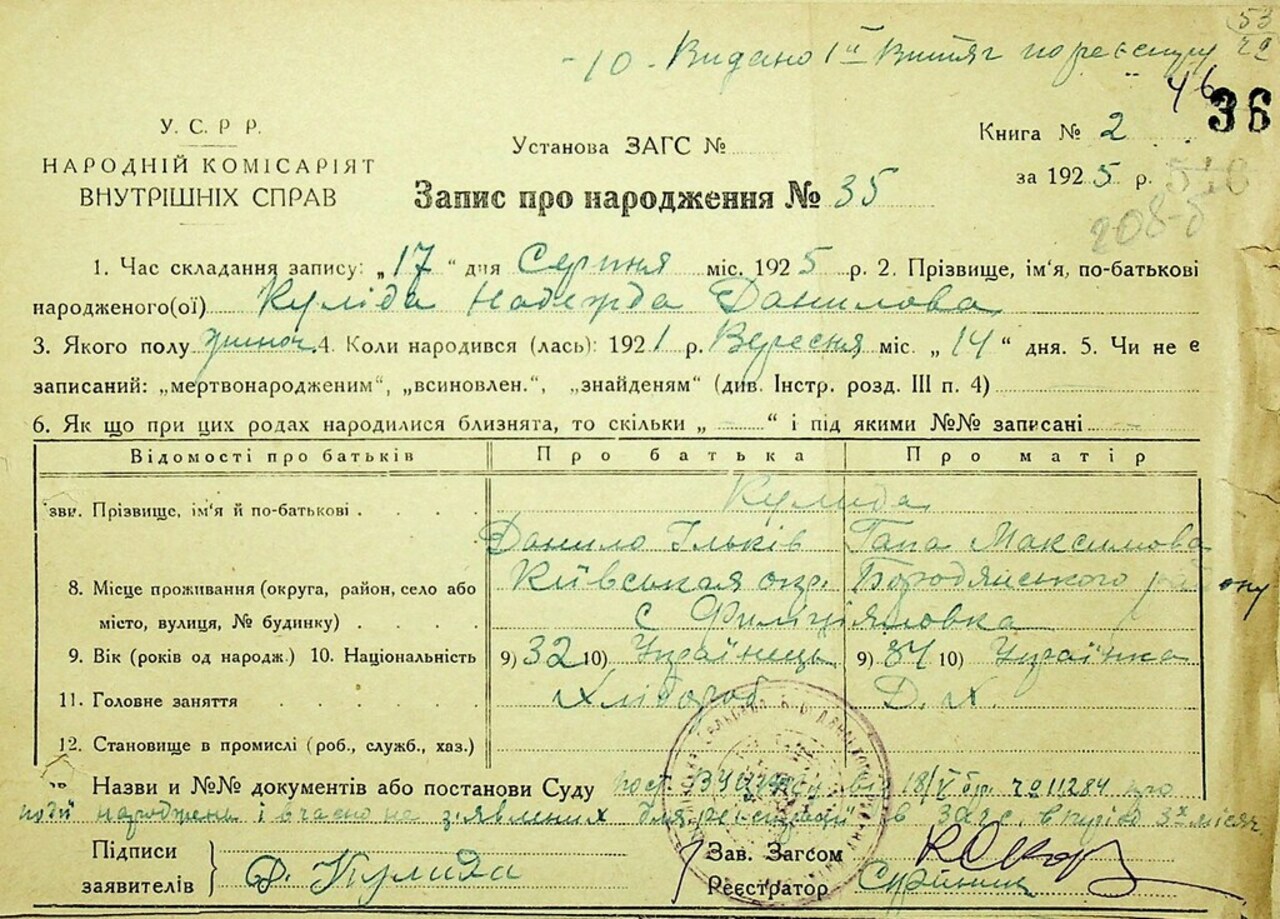 -10- Видано 1й Витяг по реєстру
53
72
46
36
У. С. Р. Р.
НАРОДНІЙ КОМІСАРІЯТ
ВНУТРІШНІХ СПРАВ
Установа ЗАГС №
Книга № 2
за 1925 р.
Запис про народження № 35
208-б
1. Час складання запису: „17“ дня Серпня міс. 1925 р. 2. Прізвище, ім'я, по-батькові
народженого(ої) Куліда Надежда Данилова
3. Якого полу жіноч. 4. Коли народився (лась): 1921 р. Вересня міс. „14“ дня. 5. Чи не є
записаний: „мертвонародженим“, „всиновлен.“, „знайденям“ (див. Інстр. розд. III п. 4)
6. Як що при цих родах народилися близнята, то скільки „ — “ і під якими №№ записані —
Відомості про батьків Про батька Про матір
Прізвище, ім'я й по-батькові Кулида
Данило Ільків Гапа Максимова
8. Місце проживання (округа, район, село або Київськая окр. Бородянського району
місто, вулиця, № будинку) с Филіціяновка
9. Вік (років од народж.) 10. Національність 9) 32 10) Українець 9) 10) Українка
11. Головне заняття Хлібороб Д. Х.
12. Становище в промислі (роб., служб., хаз.)
Назви и №№ документів або постанови Суду пост. ВУЦВК від 18/V б.р. ч 011284 про
події народжень і вчасно не з'явлених для реєстрації в загс. в період 3х місяч.
Підписи
заявителів Д. Кулида
Зав. Загсом
Реєстратор